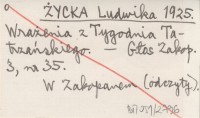 ŻYCKA Ludwika 1925.
Wrażenia z Tygodnia Ta-
trzańskiego. — Głos Zakop.
3, nr 35.
W Zakopanem (odczyty).